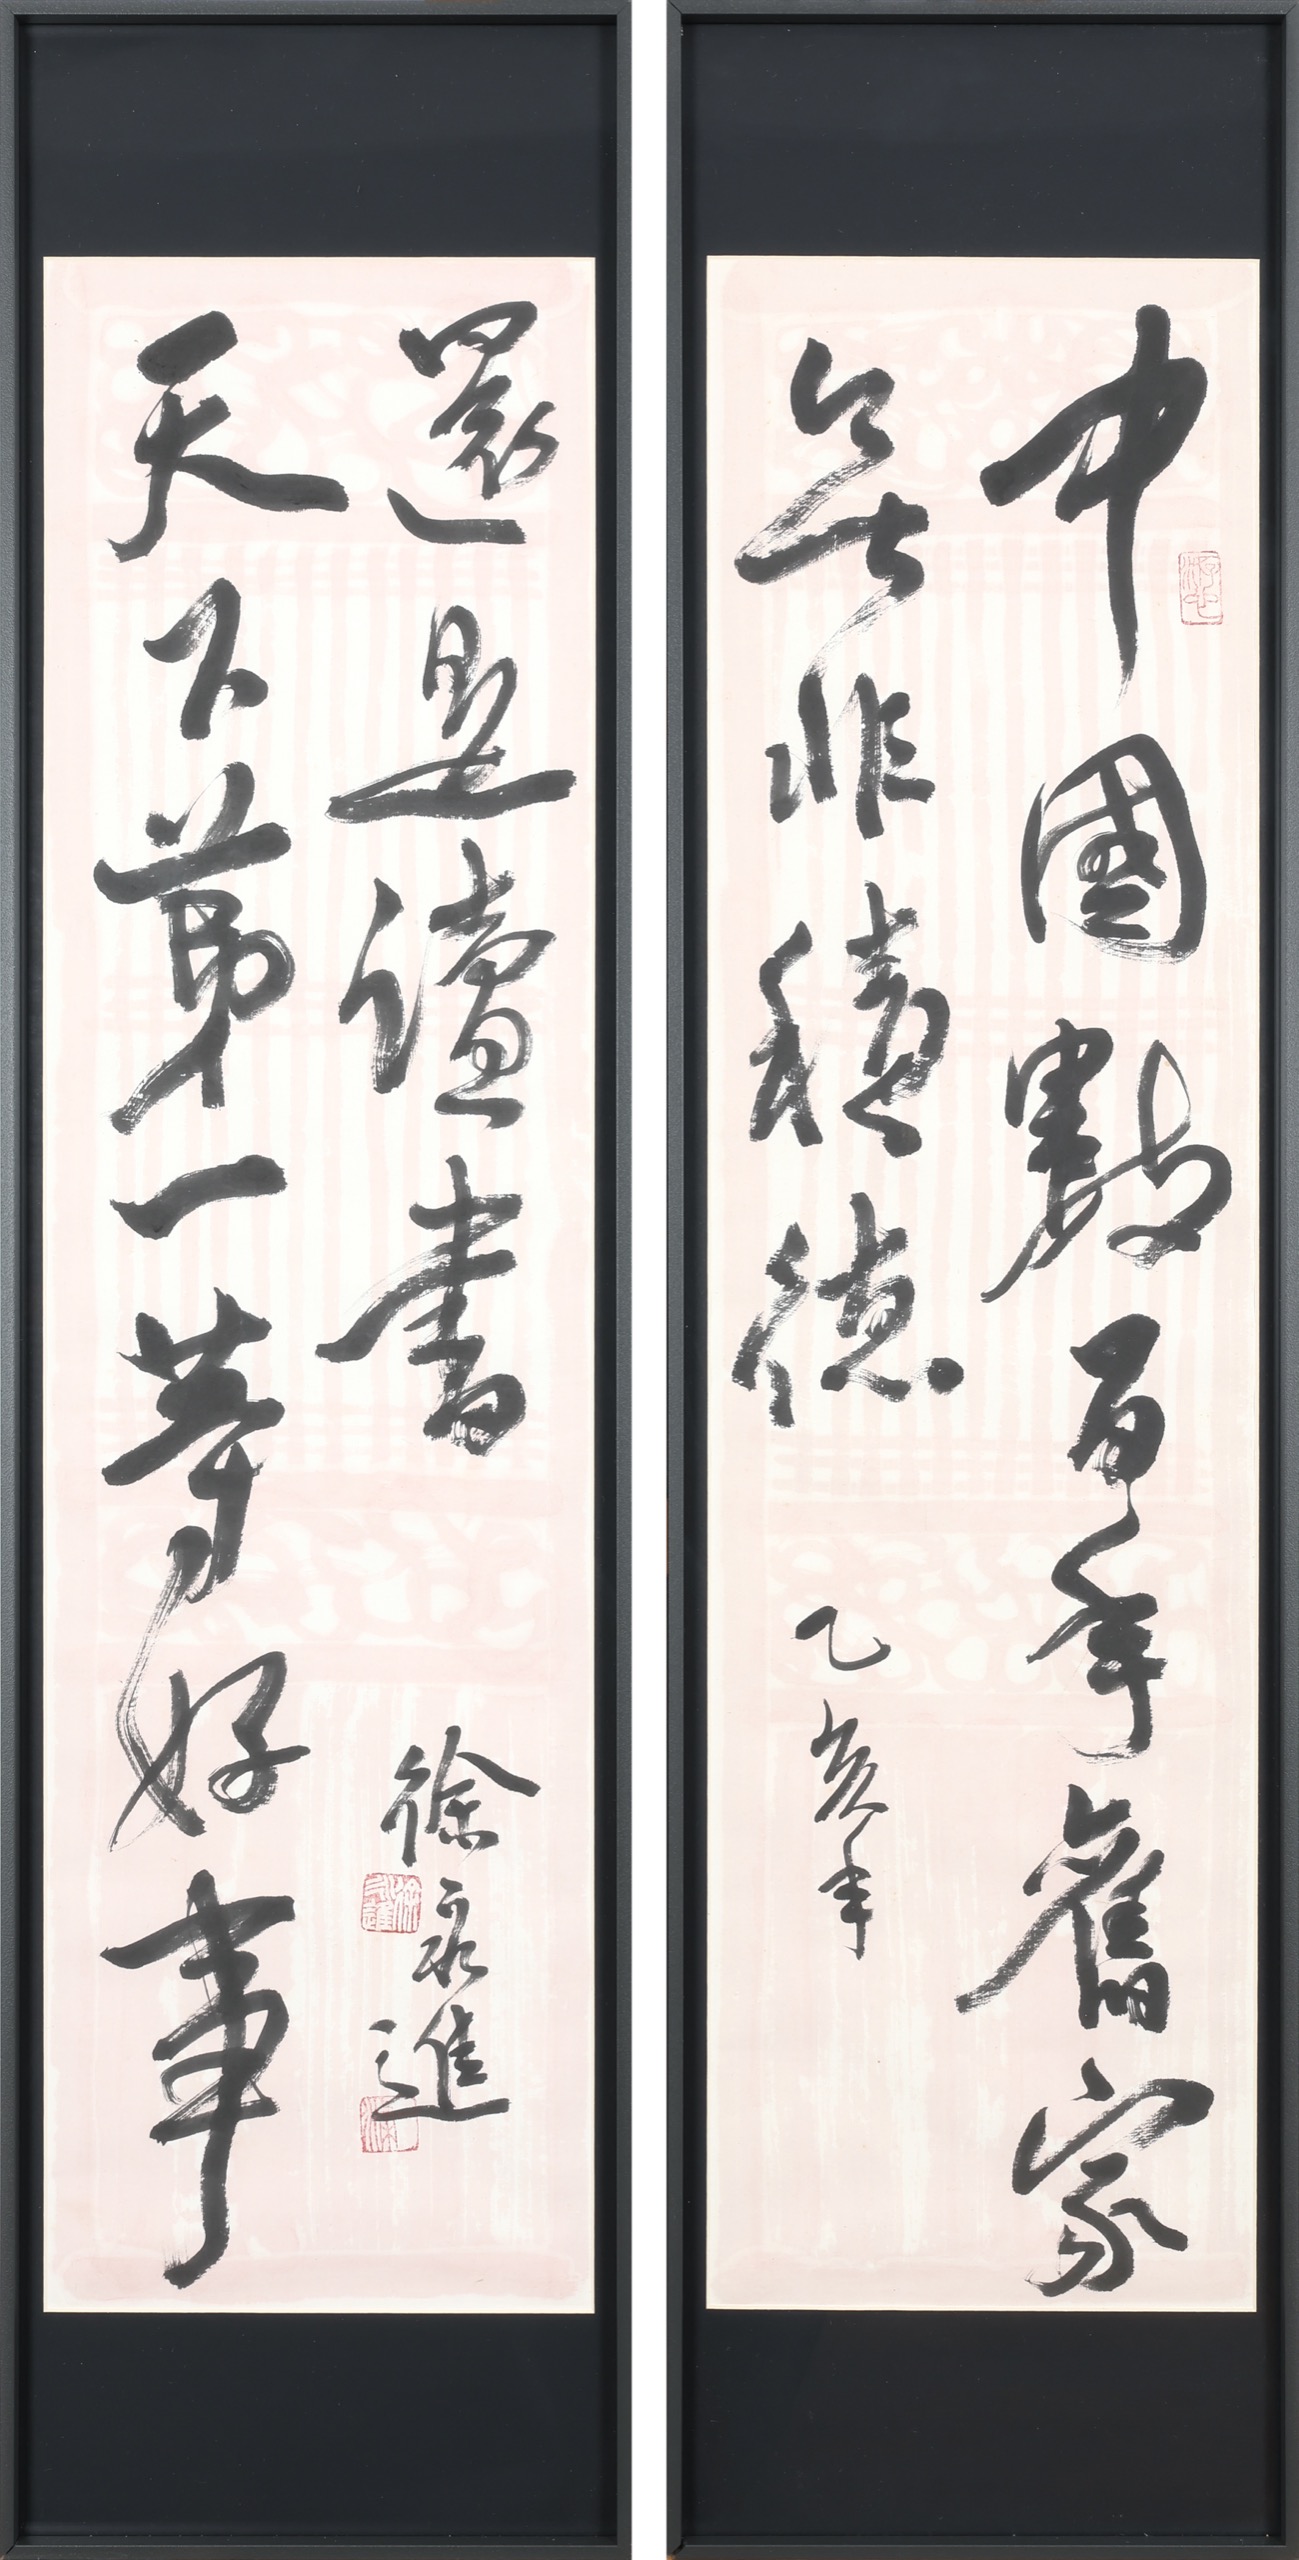 中國數百年舊家
無非積德
乙亥年
天下第一等好事
還是讀書
徐永進